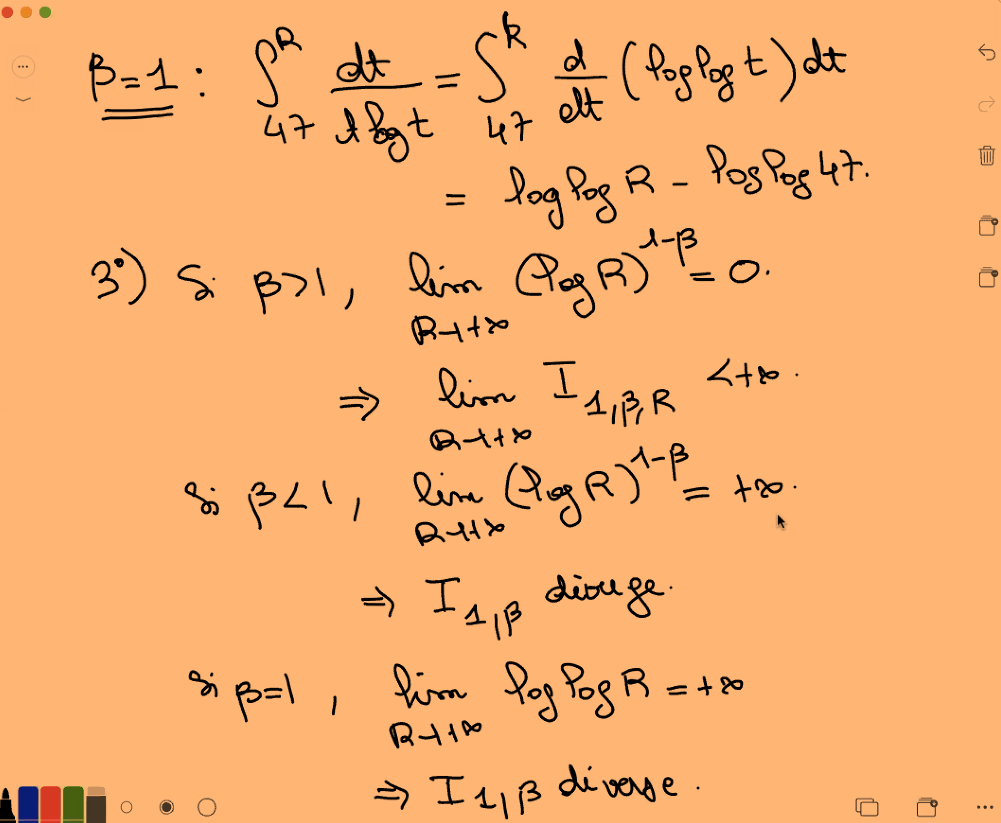 β=1 : ∫_{47}^{R} dt/(t log t) = ∫_{47}^{R} d/dt (log log t) dt
= log log R - log log 47.
3°) Si β>1, lim_{R→+∞} (log R)^{1-β} = 0.
⇒ lim_{R→+∞} I_{1,β,R} <+∞.
Si β<1, lim_{R→+∞} (log R)^{1-β} = +∞.
⇒ I_{1,β} diverge.
Si β=1, lim_{R→+∞} log log R = +∞
⇒ I_{1,β} diverge.